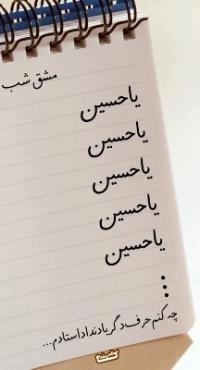 مشق شب
یاحسین
یاحسین
یاحسین
یاحسین
یاحسین
چه کنم حرف دگر یاد نداد استادم...